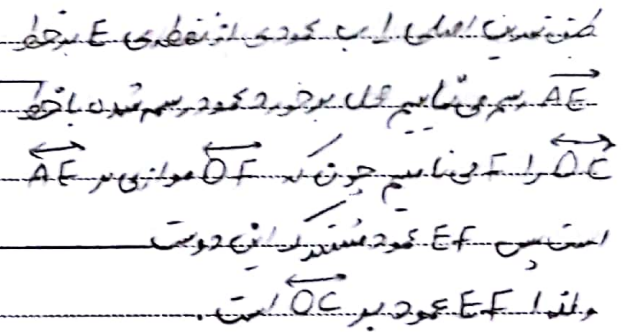 طبق تعریف اصلی اب عمودی از نقطه‌ی E بر خط
AE رسم می‌نماییم محل برخورد عمود رسم شدن با خط
OC را F می‌نامیم چون که OF موازی بر AE
است پس EF عمود مشترک این دوست
ولذا EF عمود بر OC است.